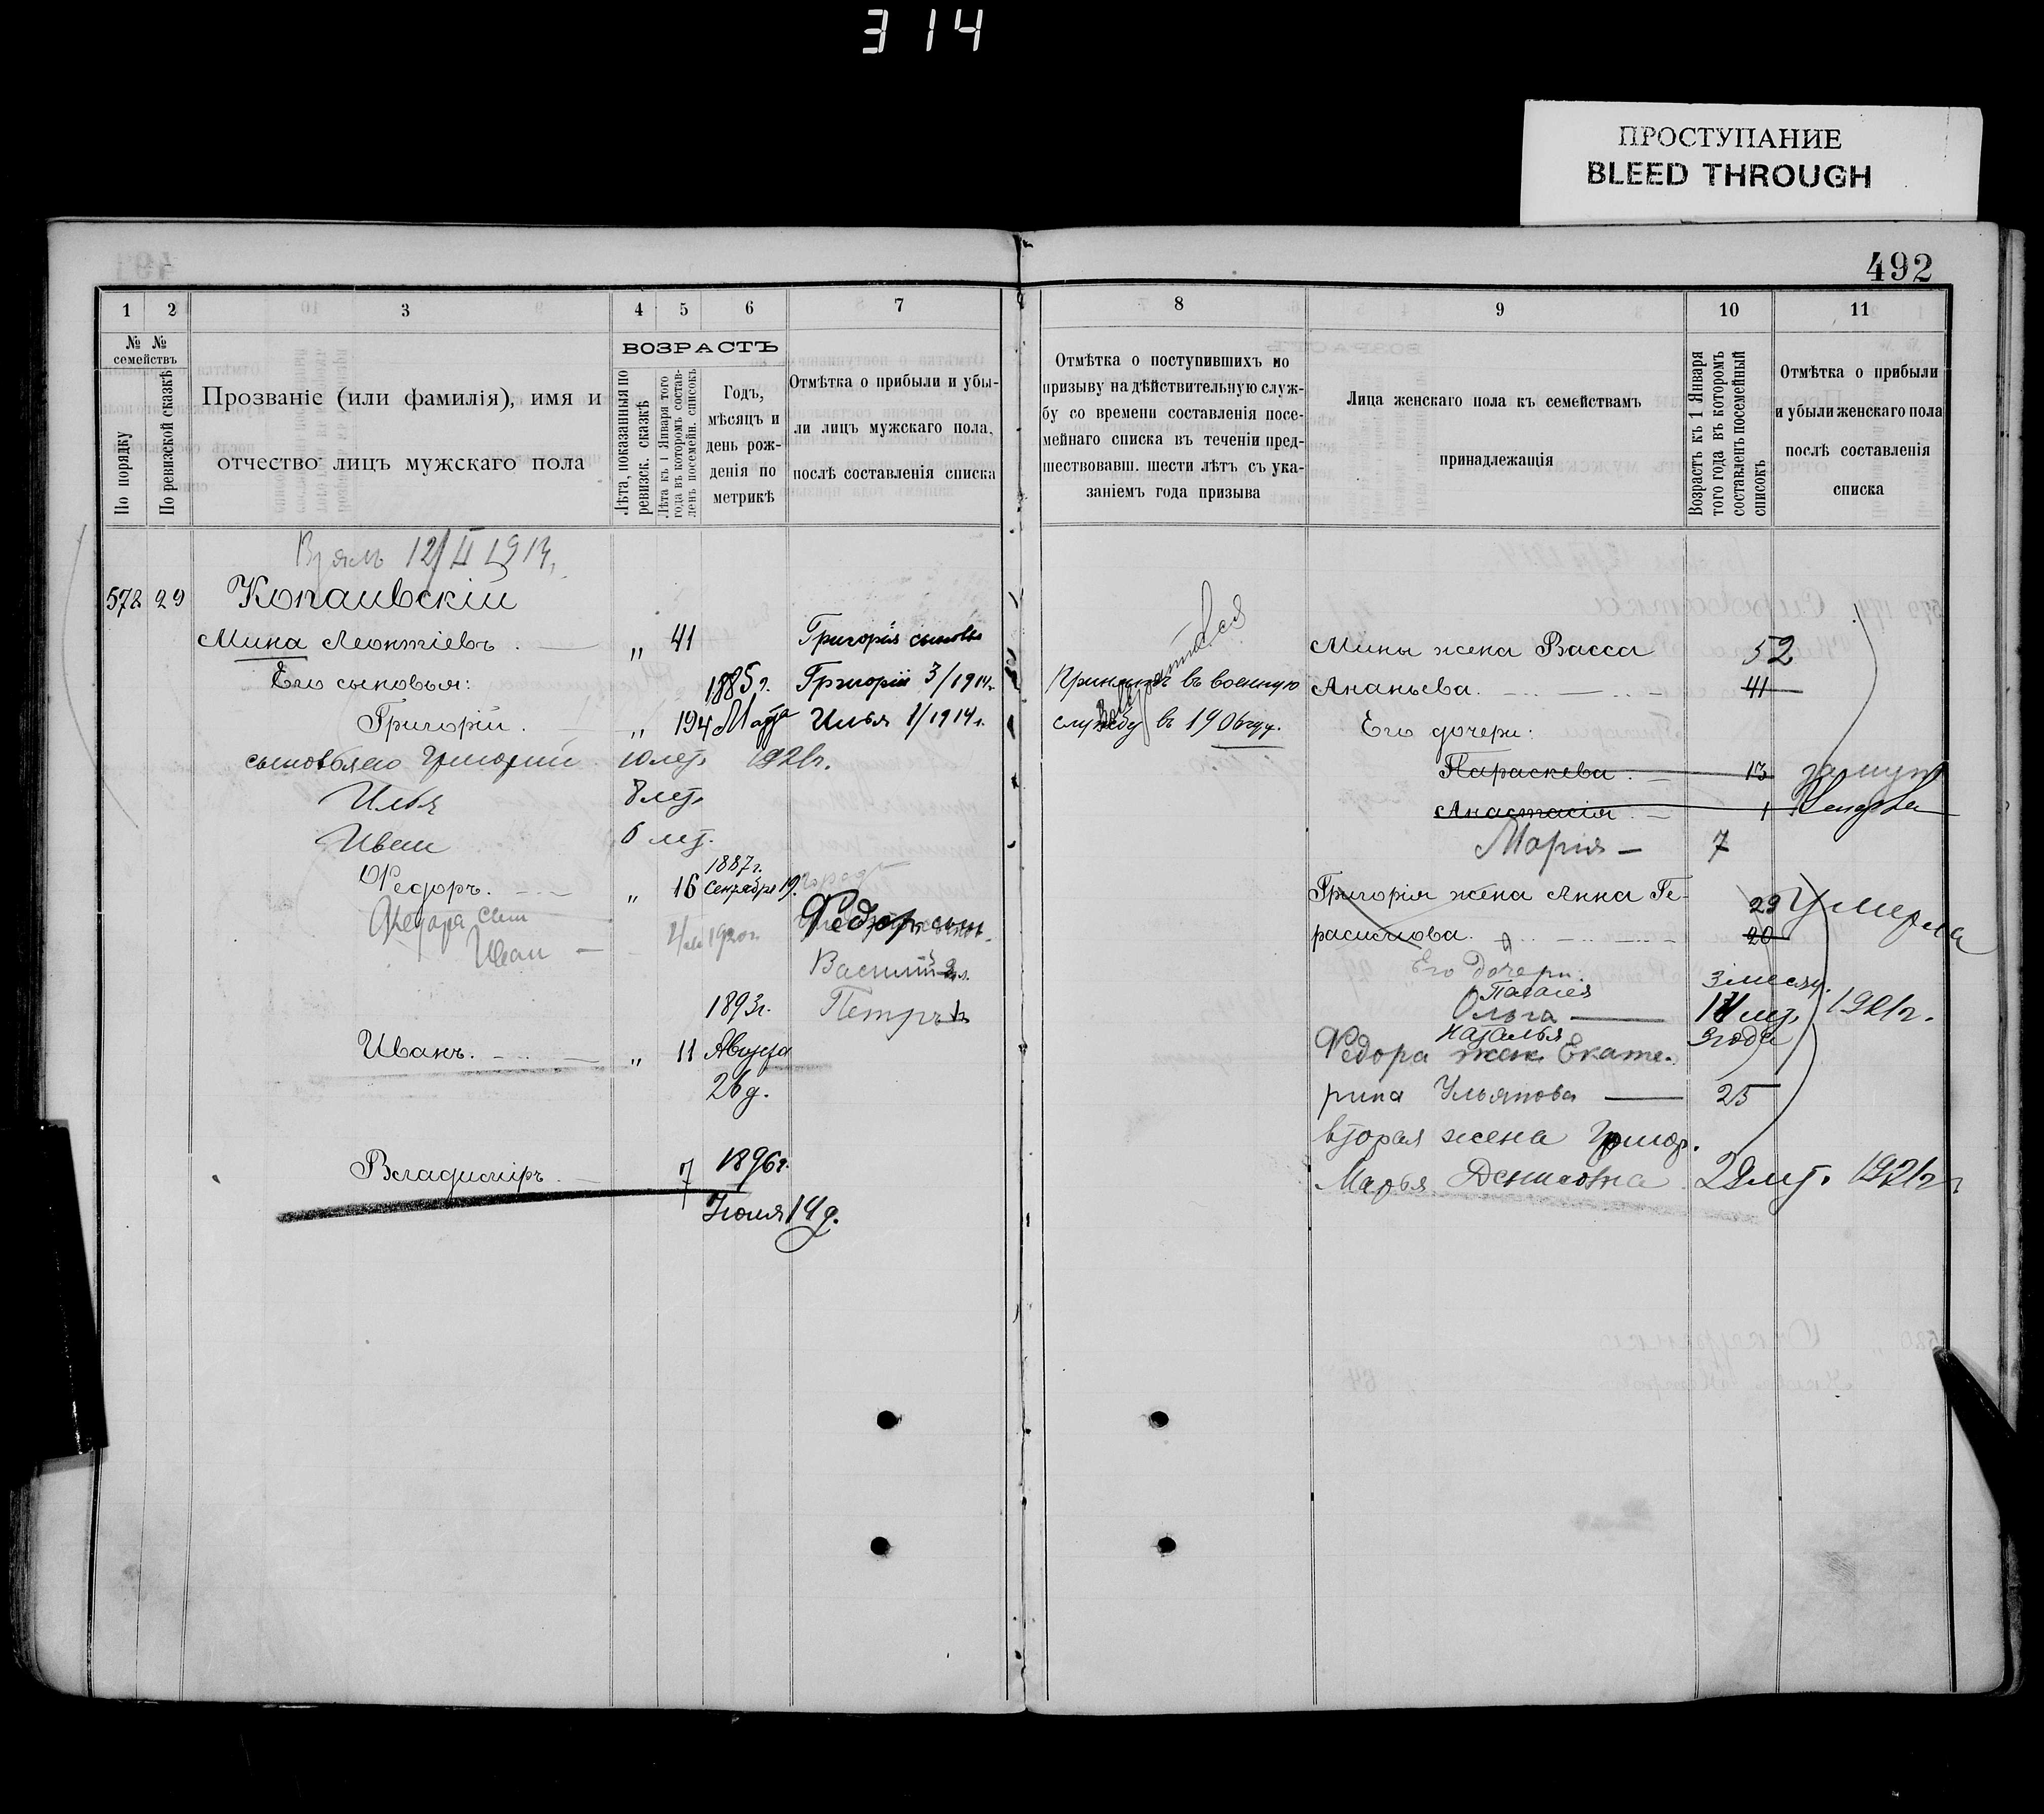 314
ПРОСТУПАНИЕ
BLEED THROUGH
492
1 2 3 4 5 6 7
№ № семействъ
По порядку
По ревизской сказкѣ
Прозваніе (или фамилія), имя и
отчество лицъ мужскаго пола
ВОЗРАСТЪ
Лѣта, показанныя по
ревизск. сказкѣ
Лѣта къ 1 Января того
года въ которомъ состав-
ленъ посемейн. списокъ
Годъ,
мѣсяцъ и
день рож-
денія по
метрикѣ
Отмѣтка о прибыли и убы-
ли лицъ мужскаго пола,
послѣ составленія списка
12/II 1914
578 29
Мина Леонтіевъ. „ 41 Григорія сыновья
Его сыновья: 1885 г. Григорій 3/1914г.
Григорій. „ 19 Илья 1/1914 г.
Григорий 10 лет 1921г.
Илья 8 лет
Иван 6 лет.
1887 г.
Федоръ. „ 16 Сентября 19.
Федора сын Федоръ сын
Иван 1920г.
Василий
1893г. Петръ
Иванъ. „ 11 Августа
26 д.
Владиміръ 7 1896 г.
Іюля 14 д.
8 9 10 11
Отмѣтка о поступившихъ по
призыву на дѣйствительную служ-
бу со времени составленія посе-
мейнаго списка въ теченіи пред-
шествовавш. шести лѣтъ съ ука-
заніемъ года призыва
Лица женскаго пола къ семействамъ
принадлежащія
Возрастъ къ 1 Января
того года въ которомъ
составленъ посемейный
списокъ
Отмѣтка о прибыли
и убыли женскаго пола
послѣ составленія
списка
Мины жена Васса 52
Принятъ въ военную Ананьева. 41
службу въ 1906 году. Его дочери:
Параскева. 13 замуж
Анастасія. 1
Марія 7
Григорія жена Анна Ге- 29 Умерла
расимова. 20
Его дочери. 3 месяц.
Палагея
Ольга 1921г.
Наталья 3 года
Федора жена Екате-
рина Ульянова 25
вторая жена Григор.
Марья Денисовна 1921г